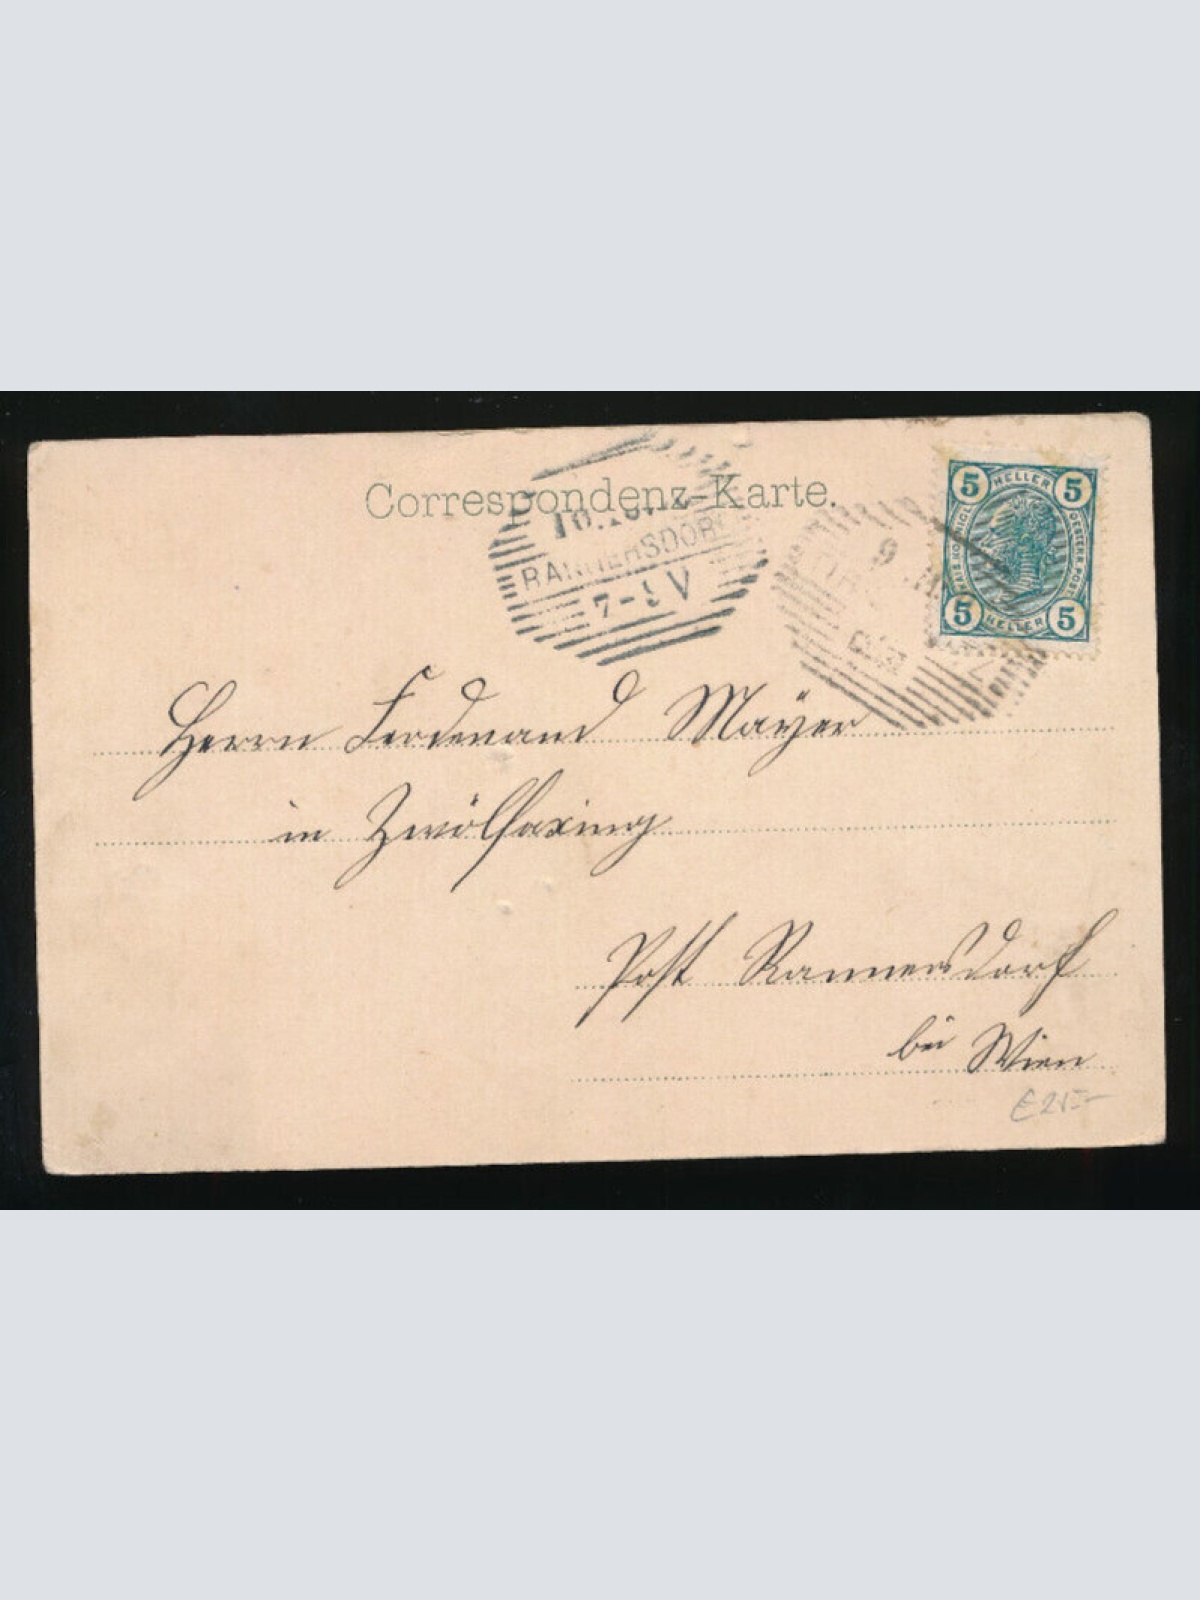 Correspondenz-Karte.
RANNERSDORF
V
5 HELLER 5
KAIS. KÖNIGL. OESTERR. POST
5 HELLER 5
Herrn Ferdinand Mayer
in Zwölfaxing
Post Rannersdorf
bei Wien